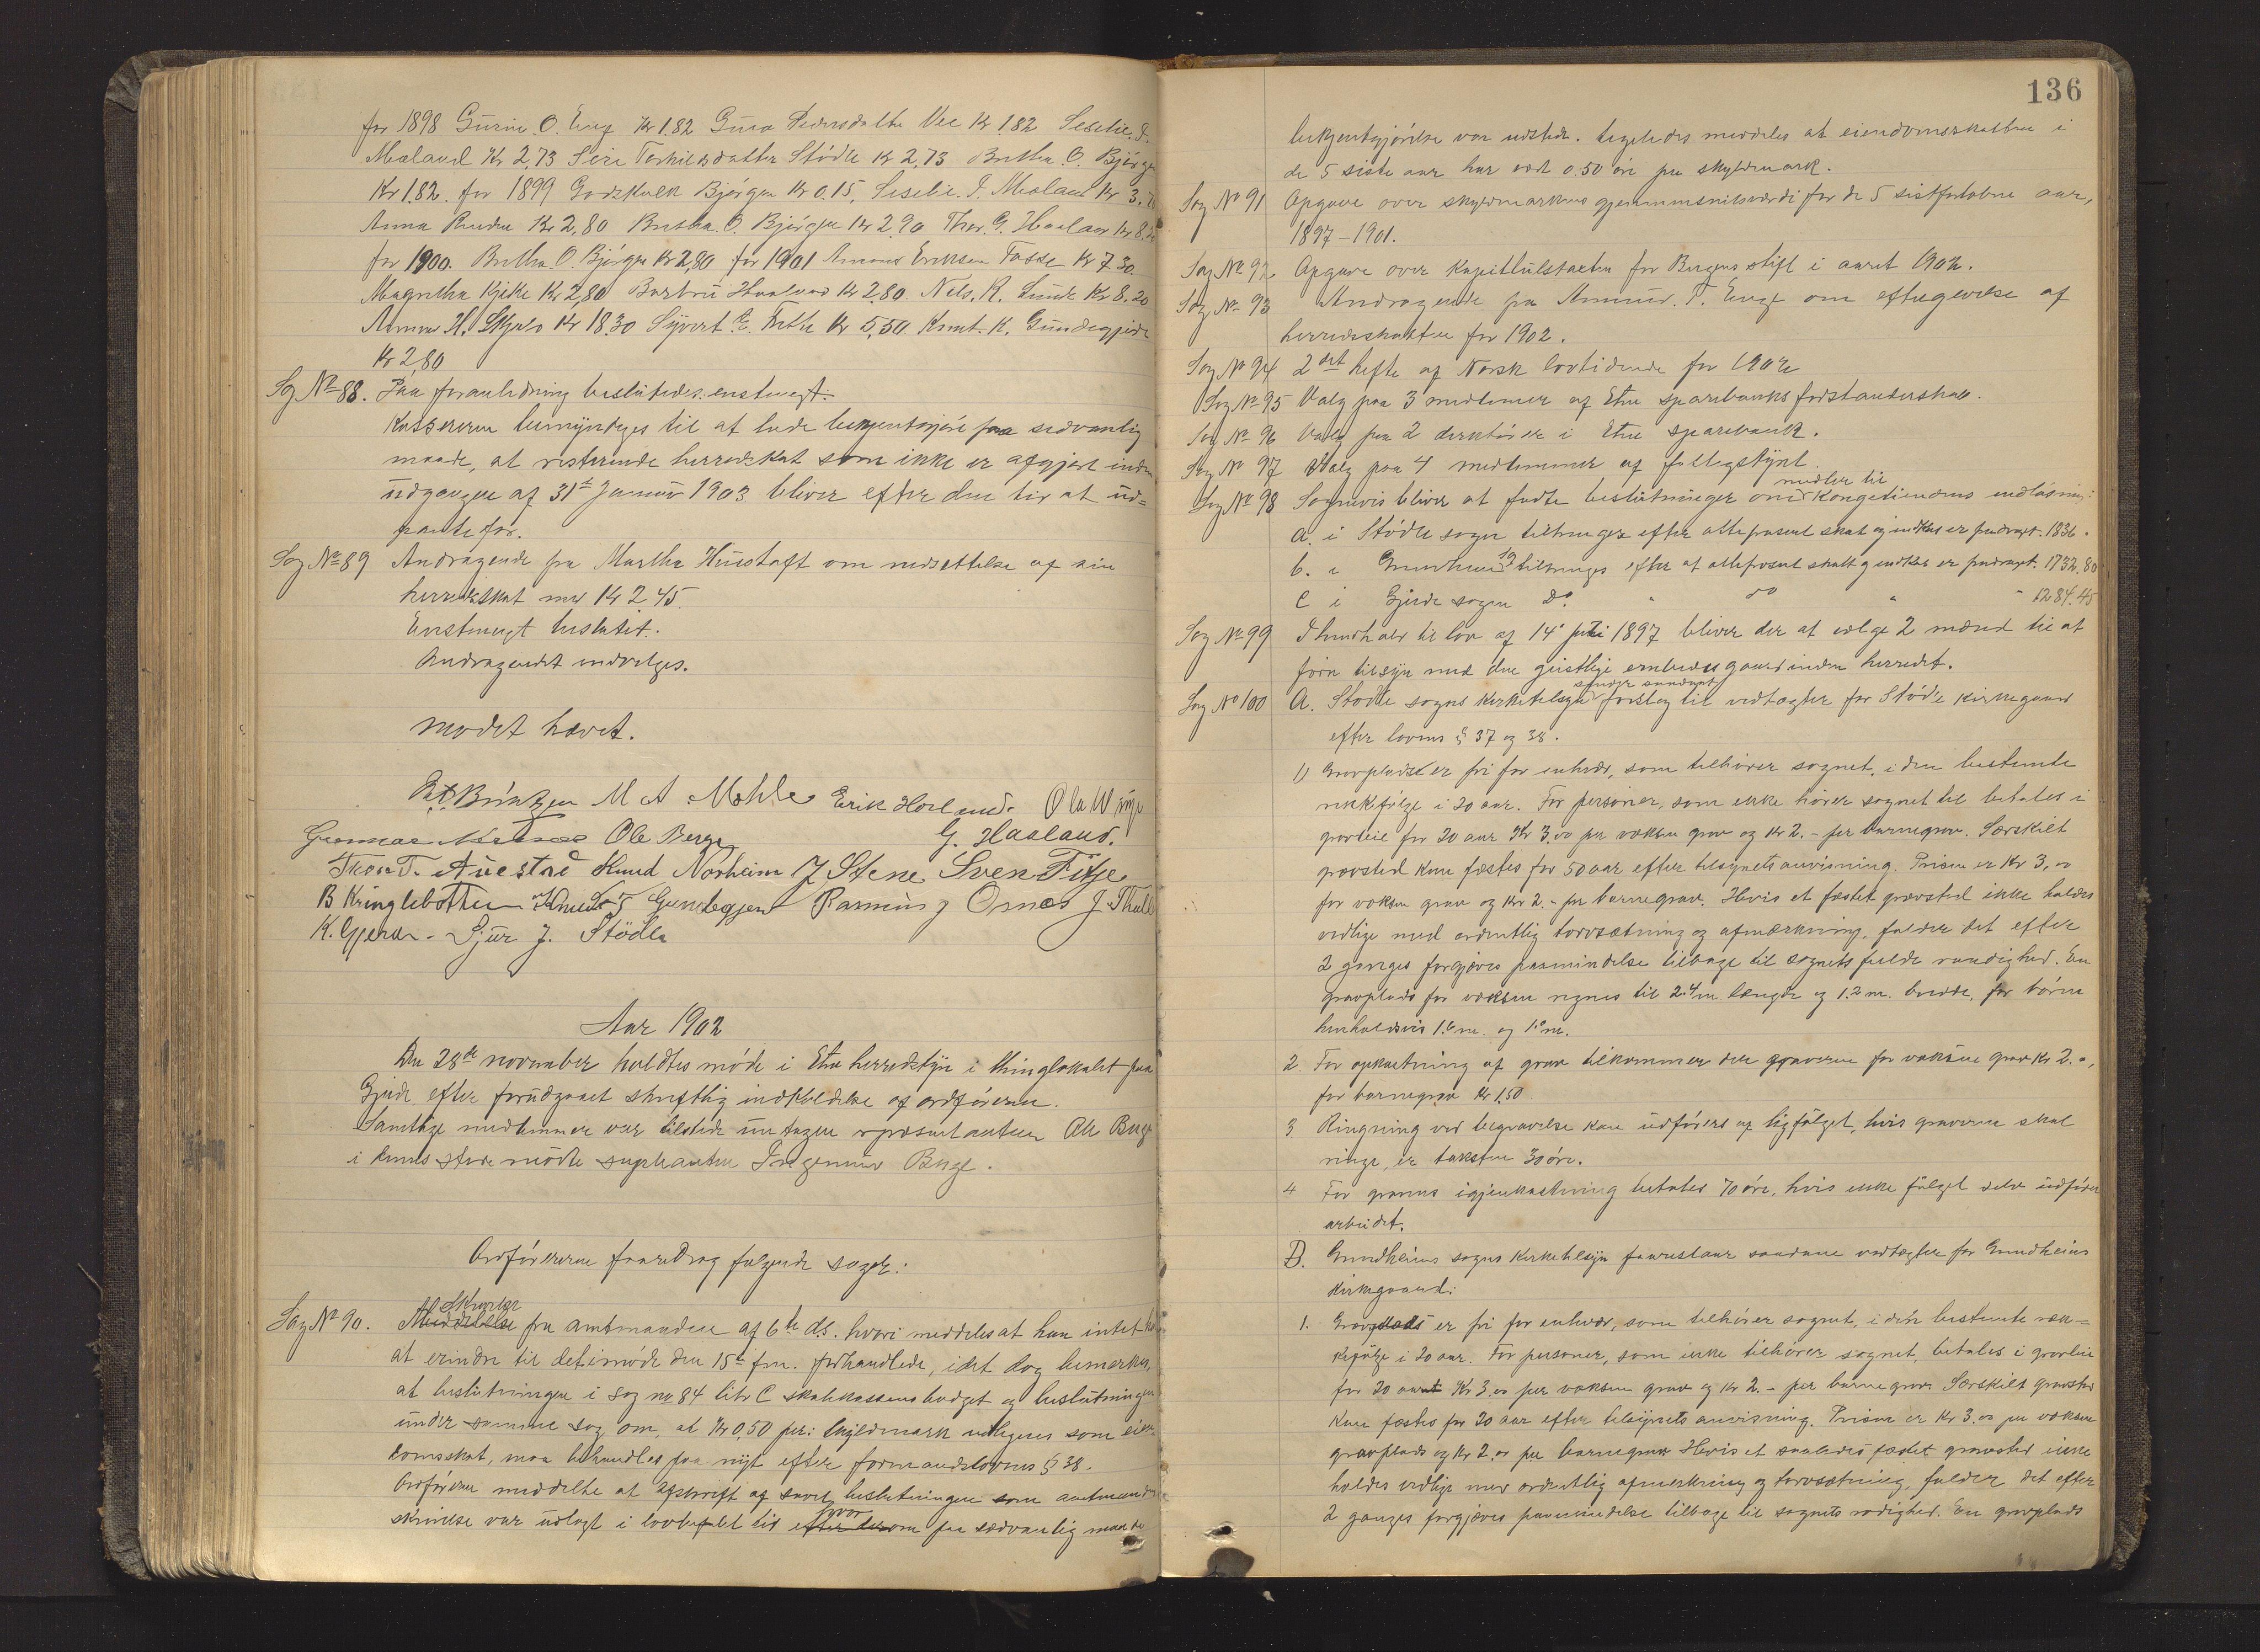 for 1898 Gurine O. Enge Kr 1.82 Guro Pedersdatter Vee Kr 1.82 Seselie. I.
Mæland Kr 2,73 Siri Terkilsdatter Stödle Kr 2,73 Brita O. Bjørgen
Kr 1.82. for 1899 Godskalk Bjørgen Kr 0.15, Seselie. I. Mæland Kr 3.
Anna Kr 2,80 Britha. O. Bjørgen Kr 2.90 Thor. G. Haaland Kr 8.
for 1900. Britha. O. Bjørgen Kr 2,80 for 1901 Amund Eriksen Fosse Kr 7.30.
Magretha Kjeke Kr 2,80 Barbru Haaland Kr 2.80. Nels. R. Lunde Kr 8.20
Amund H. Skjold Kr 18.30 Syvert E. Kr 5,50 Knut. K. Gundegjerde
Kr 2,80
Sag No 88. Paa foranledning besluttedes enstemigt:
Kassereren bemyndiges til at lade bekjentgjöre paa sedvanlig
maade, at resterende herredskat som ikke er afgjort inden
udgangen af 31te Januar 1903 bliver efter den tid at ud=
pante for.
Sag No 89 Andragende fra Martha Hustoft om nedsettelse af sin
herredskat med Kr 2.45.
Enstemigt besluttet.
Andragendet indvilges.
Mødet hævet.
M A Mehle Erik Hoeland. Ola W
Gunnar Ole Berge G. Haaland.
Thore T. Austad Knud Norheim J Stene Sven Fitje
B Kringlebotten Knut T Gundegjerd Rasmus J Ornes J Th
K. Gjerde - Sjur J. Stödle
Aar 1902
Den 28de november holdtes möde i Etne herredstyre i thinglokalet paa
Gjerde efter forudgaaet skriftlig indkaldelse af ordföreren.
Samtlige medlemmer var tilstede untagen representanten Ole Berge
i hands sted mödte suplianten Ingemund Berge.
Ordföreren foredrog følgende sager:
Sag No 90. Skrivelse fra amtmanden af 6te ds. hvori meddeles at han intet har
at erindre til det i möde den 15de f.m. forhandlede, idet dog bemerkes,
at beslutningen i sag no 84 litr C skolekassens budget og beslutningen
under samme sag, om, at Kr 0,50 per: skyldmark udlignes som eien=
domsskat, maa behandles paa nyt efter formandslovens § 38.
Ordföreren meddelte at afskrift af saavel beslutningen som amtmandens
skrivelse var udlagt i lovbefalet tid hvorom paa sædvanlig maade
136
bekjentgjörelse var udstedt. Ligeledes meddeles at eiendomsskatten i
de 5 siste aar har vært 0.50 öre per skyldmark.
Sag No 91 Opgave over skyldmarkens gjennemsnitsværdi for de 5 sistforløbne aar,
1897-1901.
Sag No 92 Opgave over Kapitelstaxten for Bergens stift i aaret 1902.
Sag No 93 Andragende fra Amund. T. Enge om eftergivelse af
herredskatten for 1902.
Sag No 94 2det hefte af Norsk lovtidende for 1902
Sag No 95 Valg paa 3 medlemer af Etne sparebanks forstanderskab.
Sag No 96 Valg paa 2 direktörer i Etne sparebank.
Sag No 97 Valg paa 4 medlemmer af fattigstyret.
Sag No 98 Sognevis bliver at fadte beslutninger om midler til Kongetiendens indløsning:
a. i Stödle sogn tiltrenges efter at 1836.
b. i Grindheim sg tiltrenges efter at 1732.80
c i Gjerde sogn do. " do " - 1284.45
Sag No 99 I henhold til lov af 14de juli 1897 bliver der at vælge 2 mænd til at
före tilsyn med den geistlige embedsgaard inden herredet.
Sag No 100 A. Stödle sogns kirketilsyn sender saadant forslag til vedtægter for Stödle kirkegaard
efter lovens § 37 og 38.
1) Gravplads er fri for enhver, som tilhörer sognet, i den bestemte
rekkefölge i 20 aar. For personer, som ikke hörer sognet til betales i
gravleie for 20 aar Kr 3.00 per voksen grav og Kr 2.- per barnegrav. Særskilt
gravsted kan fæstes for 50 aar efter tilsynets anvisning. Prisen er Kr 3,00
for voksen grav og Kr 2.- per barnegrav. Hvis et fæstet gravsted ikke holdes
vedlige med ordentlig torvsætning og afmærkning, falder det efter
2 ganges forgjæves paamindelse tilbage til sognets fulde raadighed. En
gravplads for voksen regnes til 2.4 m længde og 1.2 m. bredde, for börn
henholdsvis 1.6 m. og 1.0 m.
2. For opkastning af grav tilkommer der graveren for voksen grav Kr 2.00,
for barnegrav Kr 1,50.
3 Ringning ved begravelse kan udföres af ligfölget, hvis graveren skal
ringe, er taksten 30 öre.
4 For gravens igjenkastning betales 70 öre, hvis ikke fölget selv udförer
arbeidet.
B. Grindheims sogns kirketilsyn foreslaar saadanne vedtægter for Grindheims
kirkegaard:
1. Gravplads er fri for enhver, som tilhörer sognet, i den bestemte ræk=
kefölge i 20 aar. For personer, som ikke tilhører sognet, betales i gravleie
for 20 aar Kr 3.00 per voksen grav og Kr 2.- per barnegrav Særskilt gravsted
kan fæstes for 20 aar efter tilsynets anvisning. Prisen er Kr 3.00 per voksen
gravplads og Kr 2.00 per barnegrav Hvis et saaledes fæstet gravsted ikke
holdes vedlige med ordentlig afmerkning og torvsætning, falder det efter
2 ganges forgjæves paamindelse tilbage til sognets rådighed. En gravplads